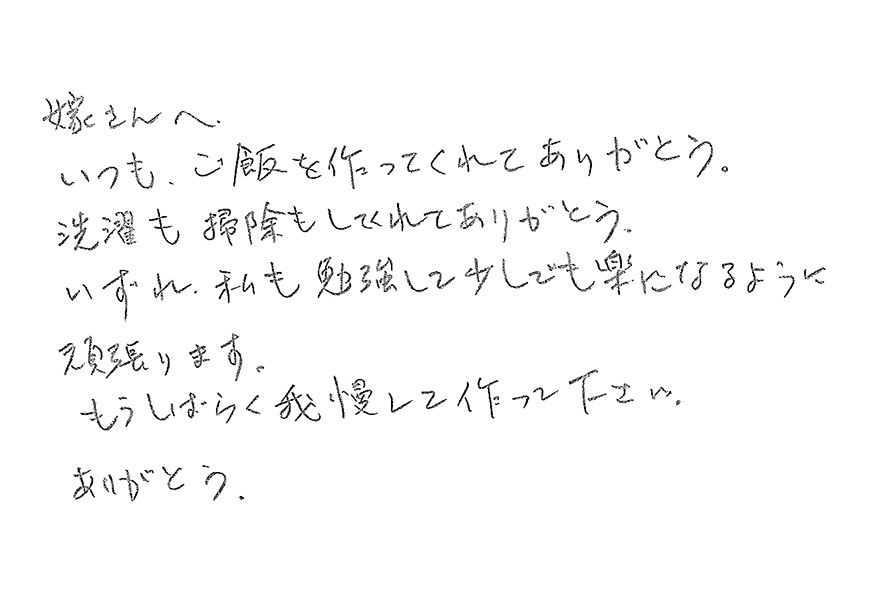 嫁さんへ.
いつも、ご飯を作ってくれてありがとう。
洗濯も掃除もしてくれてありがとう.
いずれ、私も勉強して少しでも楽になるように
頑張ります。
もうしばらく我慢して作って下さい.
ありがとう.